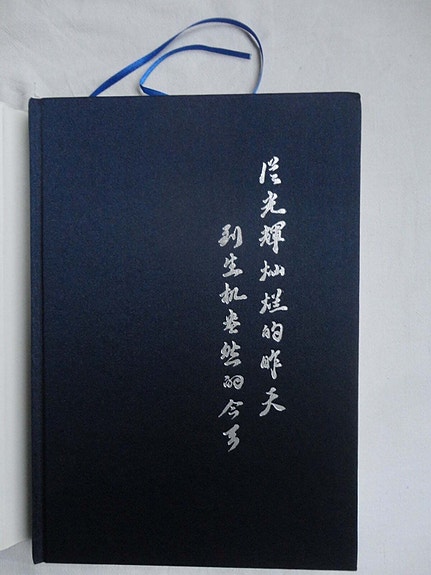 從光輝灿烂的昨天
到生机盎然的今天